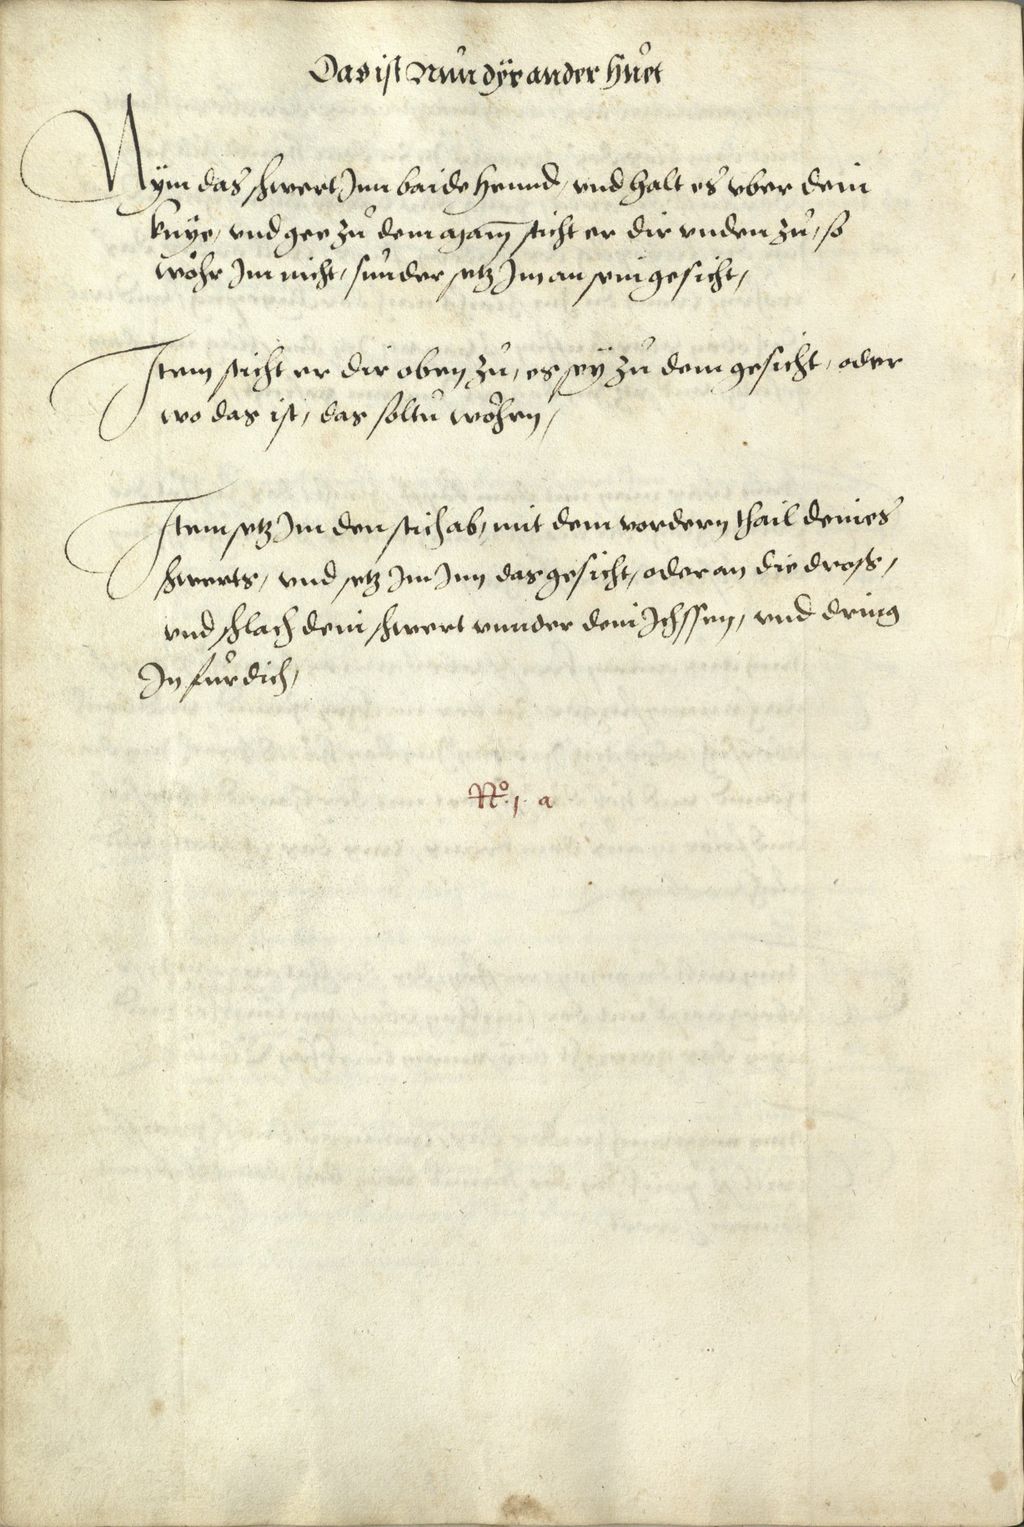 Das ist Nun dÿe ander hůet
Nÿm das schwert Inn baide hennd, vnd halt es vber dein
knÿe, vnd gee zů dem man̄ sticht er dir vnden zů, so
wöhr Im nicht, sunder setz Im an sein gesicht,
Item sticht er dir oben zů, es seÿ zů dem gesicht, oder
wo das ist, das soltu wöhren,
Item setz Im den stich ab, mit dem vordern thail deines
schwerts, vnd setz Im Inn das gesicht, oder an die dross,
vnd schlach dein schwert vnnder dein Ichssen, vnd dring
In fůr dich,
No. 1. a